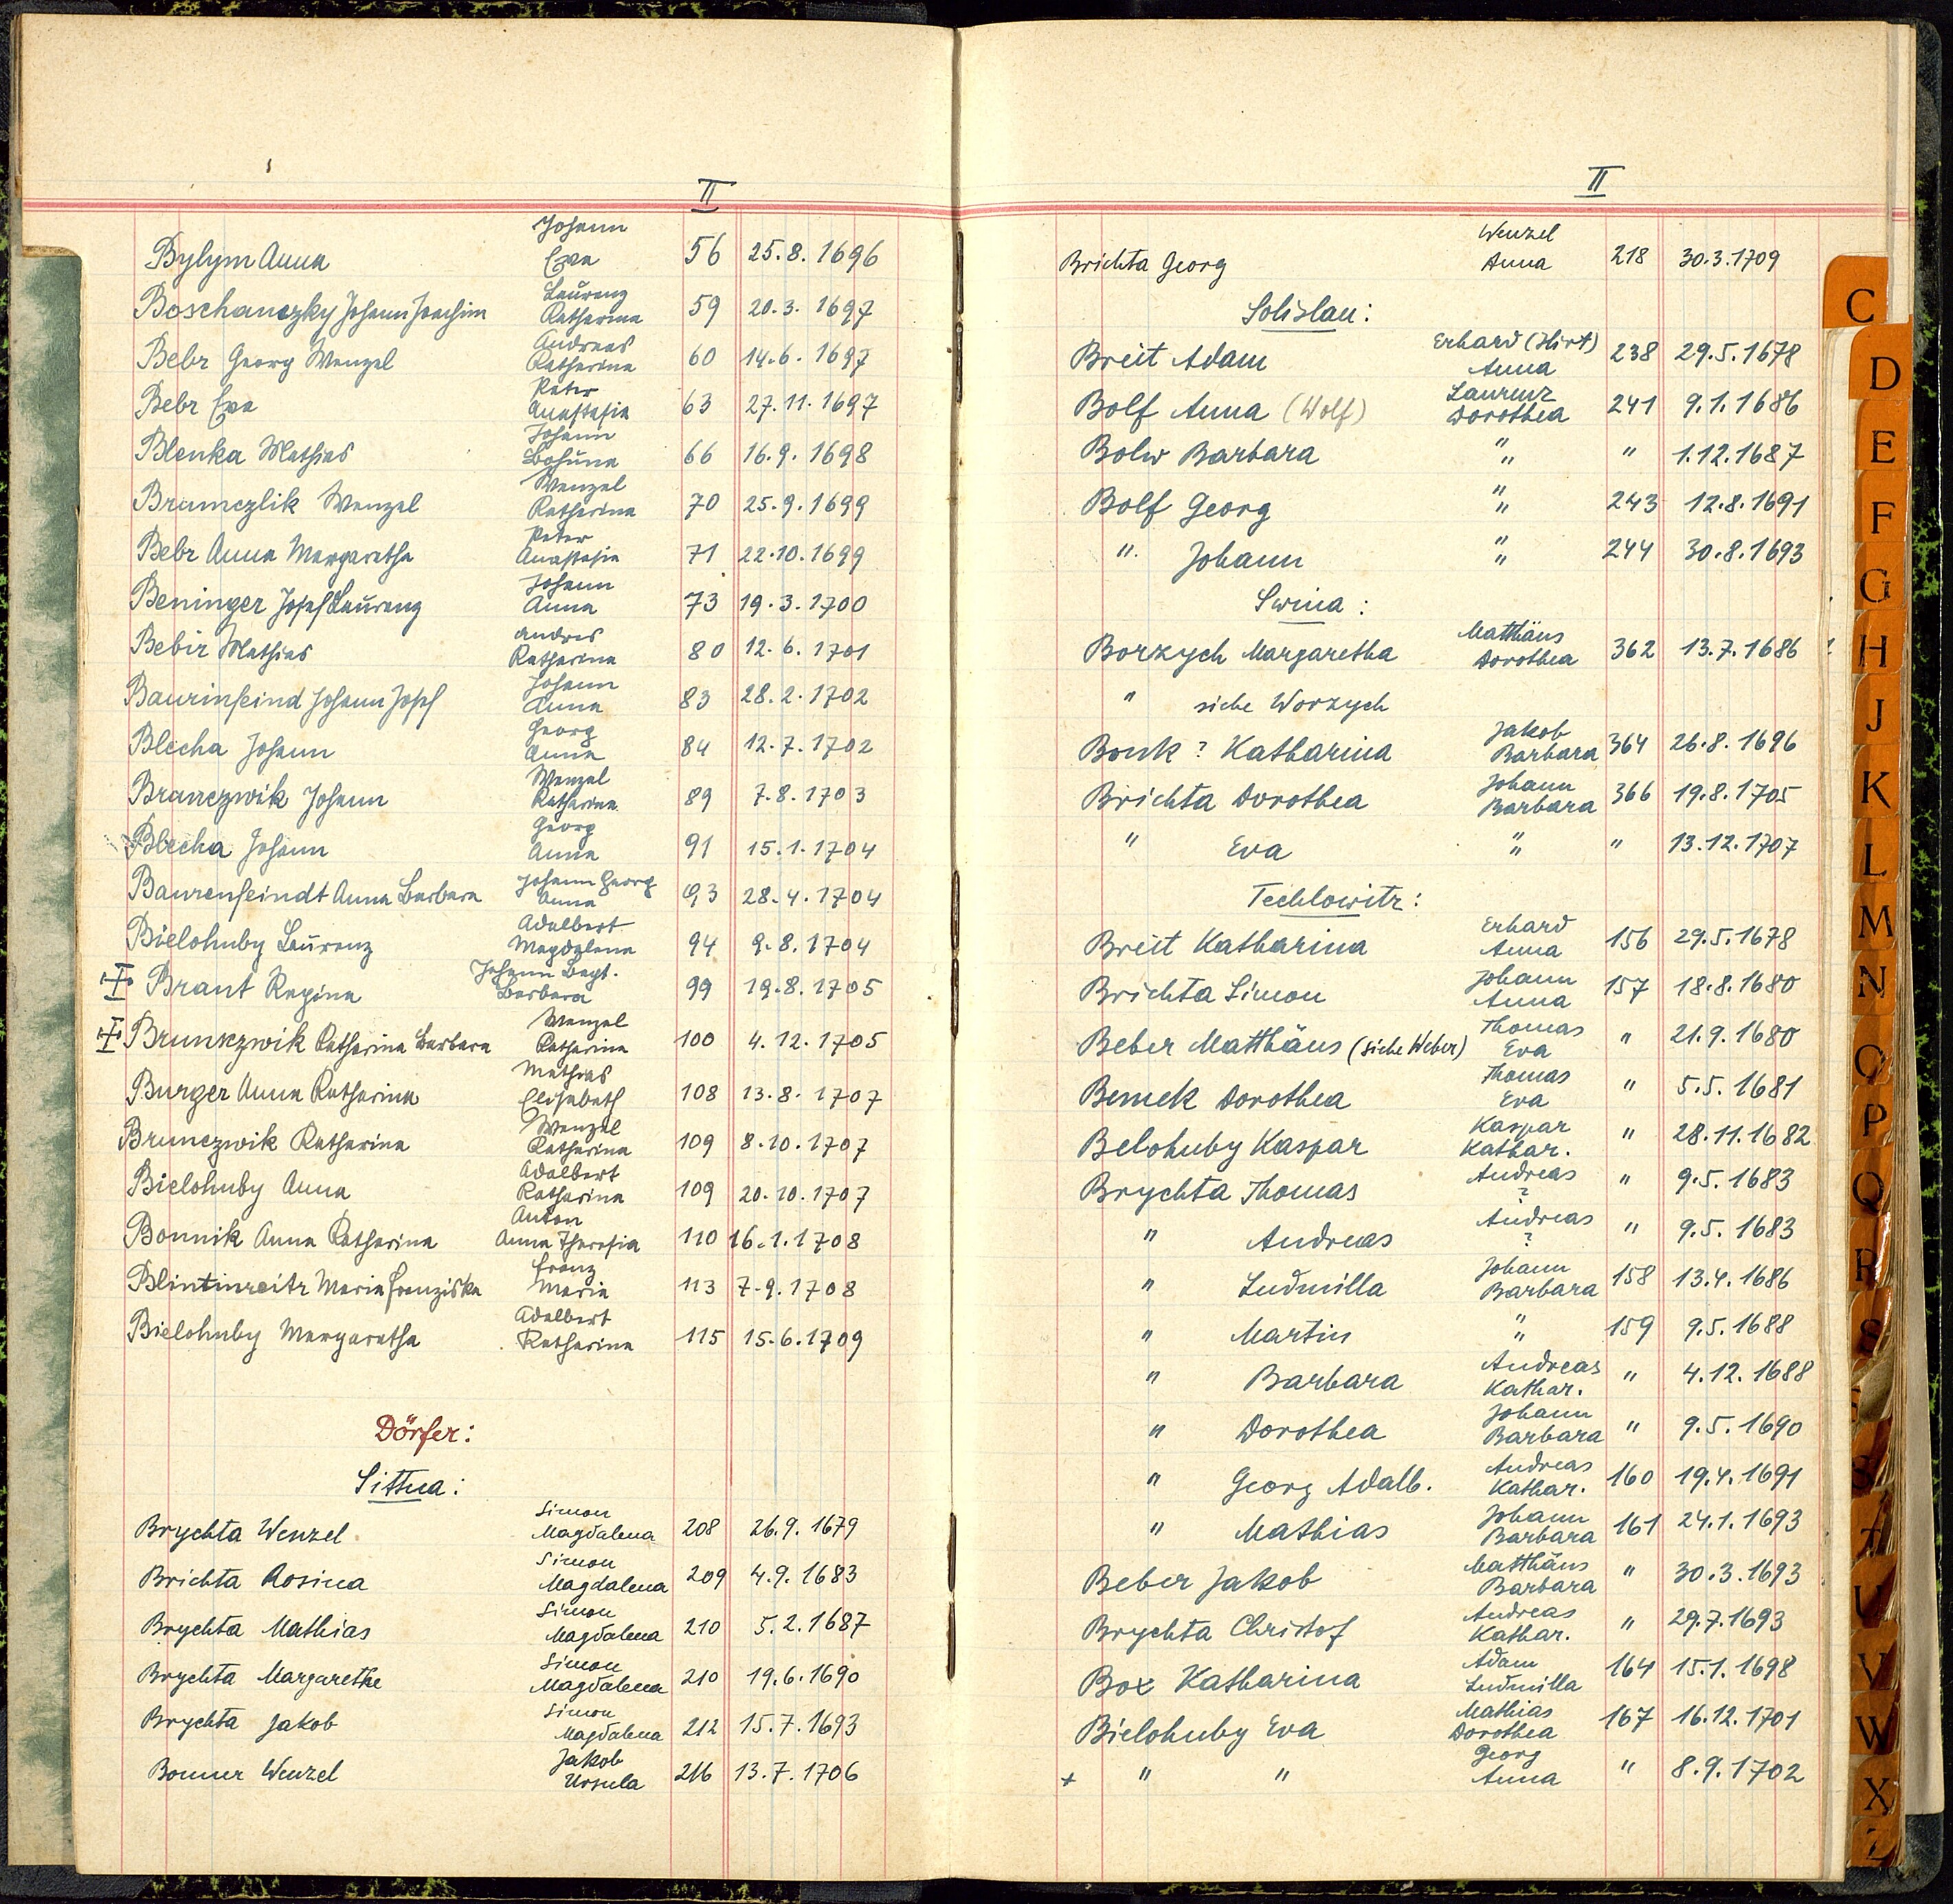 II
Johann
Bylym Anna Eva 56 25.8.1696
Laurenz
Boschanczky Johann Joachim Katharina 59 20.3.1697
Andreas
Bebr Georg Wenzel Katharina 60 14.6.1697
Peter
Bebr Eva Anastasia 63 27.11.1697
Johann
Blenka Mathias Bohuna 66 16.9.1698
Wenzel
Brunczlik Wenzel Katharina 70 25.9.1699
Peter
Bebr Anna Margaretha Anastasia 71 22.10.1699
Johann
Beninger Josef Laurenz Anna 73 19.3.1700
Andres
Bebir Mathias Katharina 80 12.6.1701
Johann
Baurinfeind Johann Josef Anna 83 28.2.1702
Georg
Blecha Johann Anna 84 12.7.1702
Wenzel
Branczwik Johann Katharina 89 7.8.1703
Georg
Blecha Johann Anna 91 15.1.1704
Johann Georg
Baurenfeindt Anna Barbara Anna 93 28.4.1704
Adalbert
Bielohuby Laurenz Magdalena 94 9.8.1704
Johann Bapt.
Brant Regina Barbara 99 19.8.1705
Wenzel
Brunczwik Katharina Barbara Katharina 100 4.12.1705
Mathias
Burger Anna Katharina Elisabeth 108 13.8.1707
Wenzel
Brunczwik Katharina Katharina 109 8.10.1707
Adalbert
Bielohuby Anna Katharina 109 20.10.1707
Anton
Bonnik Anna Katharina Anna Theresia 110 16.1.1708
Franz
Blintinreitr Maria Franziska Maria 113 7.9.1708
Adalbert
Bielohuby Margaretha Katharina 115 15.6.1709
Dörfer:
Sittna:
Simon
Brychta Wenzel Magdalena 208 26.9.1679
Simon
Brichta Rosina Magdalena 209 4.9.1683
Simon
Brychta Mathias Magdalena 210 5.2.1687
Simon
Brychta Margarethe Magdalena 210 19.6.1690
Simon
Brychta Jakob Magdalena 212 15.7.1693
Jakob
Bonner Wenzel Ursula 216 13.7.1706
II
Wenzel
Brichta Georg Anna 218 30.3.1709
Solislau:
Erhard (Hirt)
Breit Adam Anna 238 29.5.1678
Laurenz
Bolf Anna (Wolf) Dorothea 241 9.1.1686
Bolw Barbara " " " 1.12.1687
Bolf Georg " " 243 12.8.1691
" Johann " " 244 30.8.1693
Swina:
Matthäus
Borzych Margaretha Dorothea 362 13.7.1686
" siehe Worzych
Jakob
Bouk? Katharina Barbara 364 26.8.1696
Johann
Brichta Dorothea Barbara 366 19.8.1705
" Eva " " " 13.12.1707
Techlowitz:
Erhard
Breit Katharina Anna 156 29.5.1678
Johann
Brichta Simon Anna 157 18.8.1680
Thomas
Beber Matthäus (siehe Weber) Eva " 21.9.1680
Thomas
Bemek Dorothea Eva " 5.5.1681
Kaspar
Belohuby Kaspar Kathar. " 28.11.1682
Andreas
Brychta Thomas ? " 9.5.1683
Andreas
" Andreas ? " 9.5.1683
Johann
" Ludmilla Barbara 158 13.4.1686
" Martin " " 159 9.5.1688
Andreas
" Barbara Kathar. " 4.12.1688
Johann
" Dorothea Barbara " 9.5.1690
Andreas
" Georg Adalb. Kathar. 160 19.4.1691
Johann
" Mathias Barbara 161 24.1.1693
Matthäus
Beber Jakob Barbara " 30.3.1693
Andreas
Brychta Christof Kathar. " 29.7.1693
Adam
Box Katharina Ludmilla 164 15.1.1698
Mathias
Bielohuby Eva Dorothea 167 16.12.1701
Georg
+ " " Anna " 8.9.1702
C
D
E
F
G
H
J
K
L
M
N
O
P
Q
R
S
T
U
V
W
X
Z